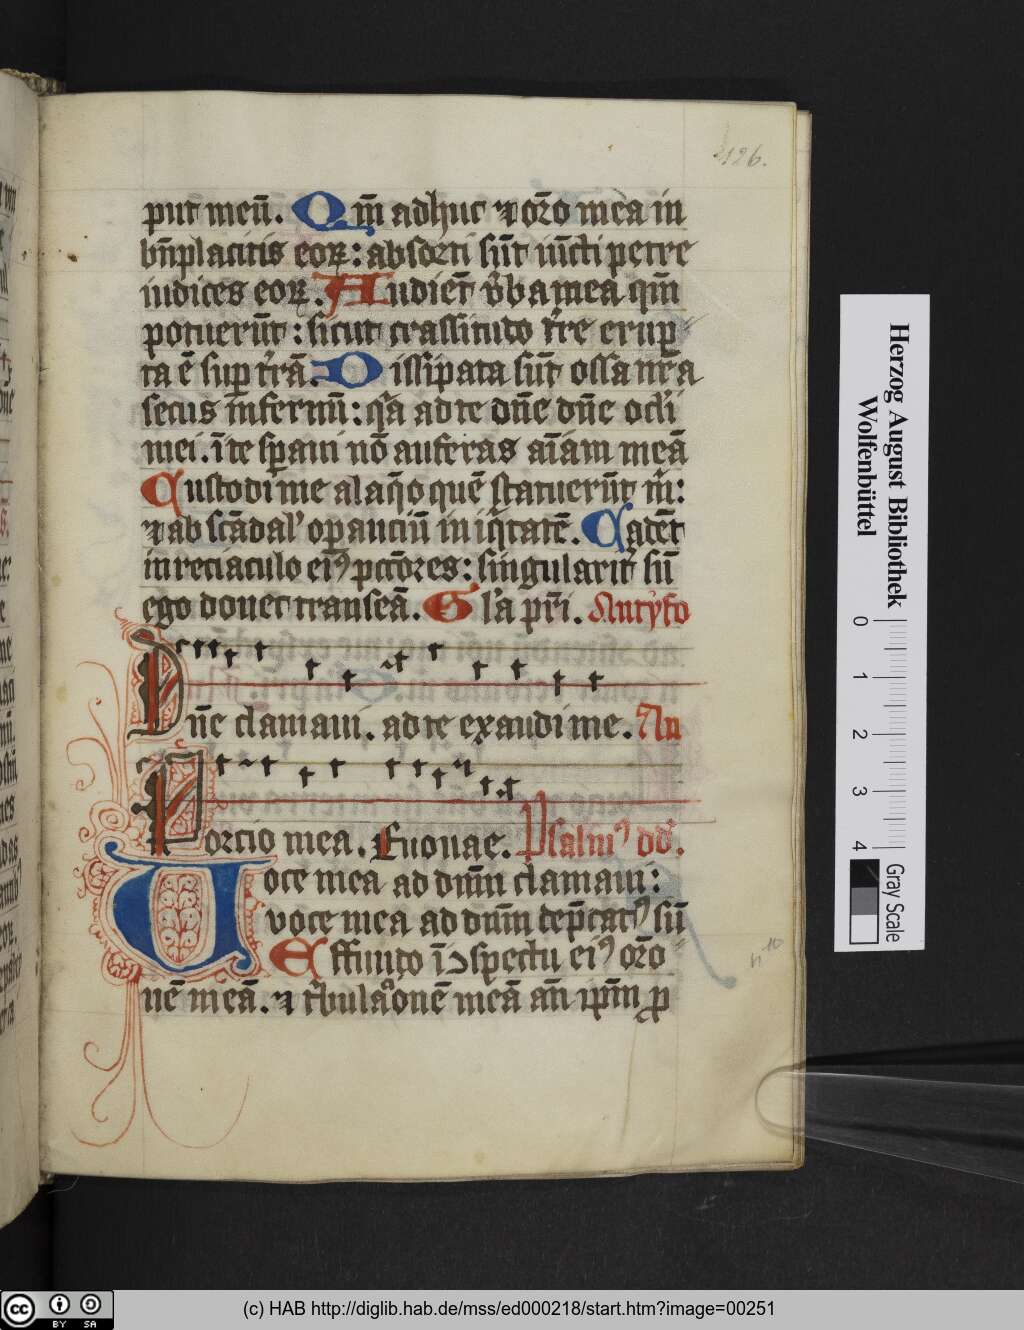 126.
put meū. Qm̄ adhuc ⁊ or̄o mea in
bn̄placitis eoꝝ: absorti sūt iūcti petre
iudices eoꝝ. Audiēt v̓ba mea qm̄
potuerūt: sicut crassitudo tr̄re erup
ta ē sup tr̓rā. Dissipata sūt ossa nr̄a
secus infernū: q̓a ad te dn̄e dn̄e ocl̓i
mei. ī te sp̱aui nō auferas aīam meā
Custodi me a laq̄o quē statuerūt m̓:
⁊ ab scādal̓ op̱anciū in iq̓tatē. Cadēt
in reciaculo eiꝰ pctōres: singularit̓ sū
ego donec transeā. Gl̓a pr̄i. Antyfo
Dn̄e clamaui. ad te exaudi me. An
Portio mea. Euouae. Psalmꝰ dd̓.
Voce mea ad dn̄m clamaui:
voce mea ad dn̄m dep̄catꝰ sū
Effundo ī ꝯspectu eiꝰ or̄o
nē meā. ⁊ tr̓bulac̓onē meā an̄ ip̄m ꝓ
n 10
Herzog August Bibliothek
Wolfenbüttel
0 1 2 3 4
Gray Scale
cc BY SA
(c) HAB http://diglib.hab.de/mss/ed000218/start.htm?image=00251